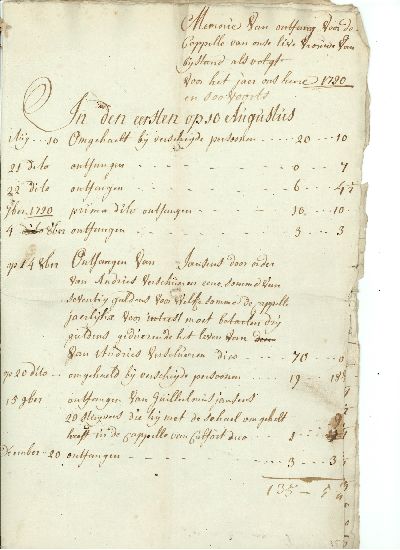 Memorie van ontfang voor de
Cappelle van onse live vrouwe van
bystand als volgt
voor het jaer ons heere 1790
en soo voorts
In den eersten op 10 Augustus
Omgehaelt bij verscheyde persoonen - - - 20 - - 10
21 dito ontfangen - - - 0 - - 7
22 dito ontfangen - - - 6 - - 4
7ber 1790 prima dito ontfangen - - - 10 - - 0
4 8ber ontfangen - - - 3 - - 3
op 14 8ber Ontfangen van Jansens door order
van Andries Verschueren eene somme van
seventig guldens voor welke somme de cappelle
jaerlijkx voor intrest moet betaelen drij
guldens geduerende het leven van
van Andries Verschueren dico - - - 70 - - 0
op 20 dito - - omgehaelt bij verscheyde persoonen - - 19 - - 18
15 9ber ontfangen van Guillielmus jansens
20 stuyvers die hij met de schael omgehaelt
heeft in de cappelle van
December - 20 ontfangen - - - 3 - - 3
135 - 5